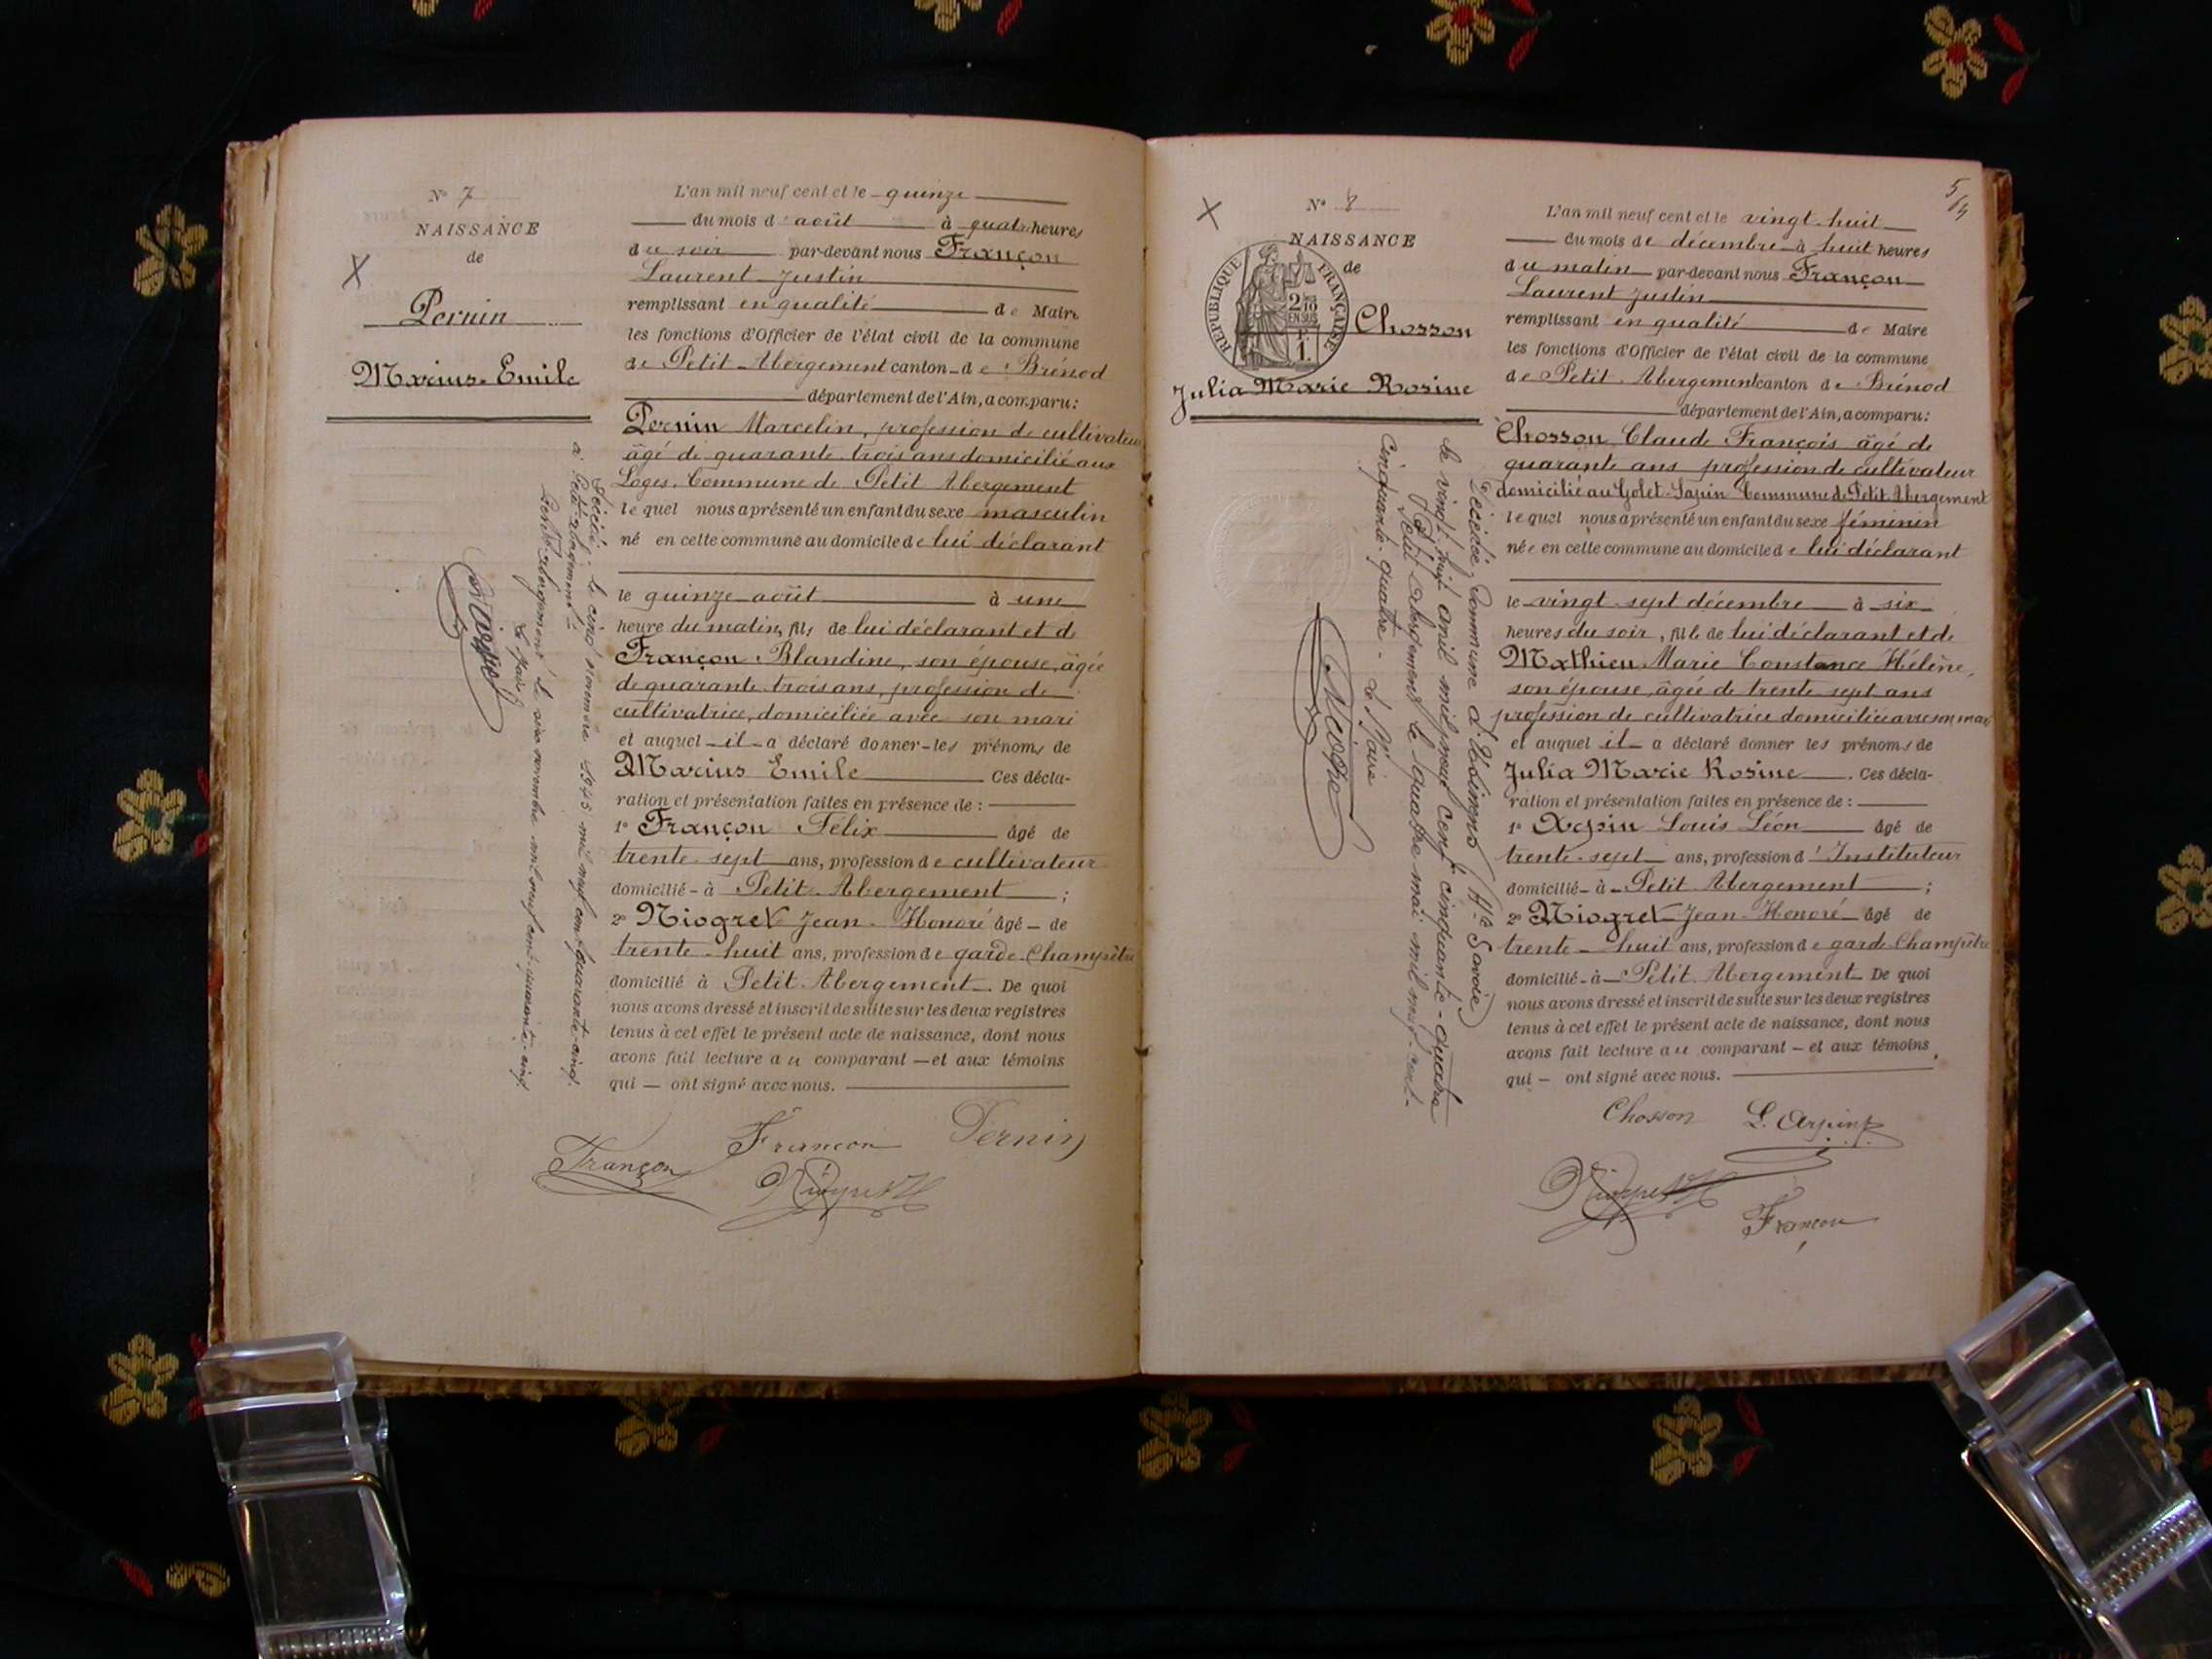 N° 7
NAISSANCE
de
Pernin
Marius Emile
L'an mil neuf cent et le quinze
du mois d'août à quatre heures
du soir par-devant nous Françon
Laurent Justin
remplissant en qualité de Maire
les fonctions d'Officier de l'état civil de la commune
de Petit Abergement canton de Brénod
département de l'Ain, a comparu:
Pernin Marcelin, profession de cultivateur
âgé de quarante trois ans domicilié aux
Loges. Commune de Petit Abergement
lequel nous a présenté un enfant du sexe masculin
né en cette commune au domicile de lui déclarant
le quinze août à une
heure du matin, fils de lui déclarant et de
Françon Blandine, son épouse, âgée
de quarante trois ans, profession de
cultivatrice, domiciliée avec son mari
et auquel il a déclaré donner les prénoms de
Marius Emile Ces décla-
ration et présentation faites en présence de :
1° Françon Félix âgé de
trente-sept ans, profession de cultivateur
domicilié à Petit Abergement ;
2° Niogret Jean-Honoré âgé de
trente-huit ans, profession de garde-Champêtre
domicilié à Petit Abergement. De quoi
nous avons dressé et inscrit de suite sur les deux registres
tenus à cet effet le présent acte de naissance, dont nous
avons fait lecture au comparant et aux témoins
qui ont signé avec nous.
Décédé le cinq novembre 1945 mil neuf cent quarante-cinq
à Petit-abergement
Petit-abergement le novembre mil neuf cent quarante-cinq
Françon Pernin
Françon Niogret JH
5
N° 8
NAISSANCE
de
REPUBLIQUE FRANÇAISE
2/10
EN SUS
1.
Chosson
Julia Marie Rosine
L'an mil neuf cent et le vingt-huit
du mois de décembre à huit heures
du matin par-devant nous Françon
Laurent Justin
remplissant en qualité de Maire
les fonctions d'Officier de l'état civil de la commune
de Petit Abergement canton de Brénod
département de l'Ain, a comparu:
Chosson Claude François âgé de
quarante ans profession de cultivateur
domicilié au Golet-Sapin Commune de Petit Abergement
lequel nous a présenté un enfant du sexe féminin
née en cette commune au domicile de lui déclarant
le vingt-sept décembre à six
heures du soir, fille de lui déclarant et de
Mathieu Marie Constance Hélène,
son épouse, âgée de trente sept ans
profession de cultivatrice domiciliée avec son mari
et auquel il a déclaré donner les prénoms de
Julia Marie Rosine. Ces décla-
ration et présentation faites en présence de :
1° Arpin Louis Léon âgé de
trente-sept ans, profession d'Instituteur
domicilié à Petit Abergement ;
2° Niogret Jean-Honoré âgé de
trente-huit ans, profession de garde-Champêtre
domicilié à Petit Abergement De quoi
nous avons dressé et inscrit de suite sur les deux registres
tenus à cet effet le présent acte de naissance, dont nous
avons fait lecture au comparant et aux témoins
qui ont signé avec nous.
Décédée, Commune d' (Hte Savoie)
le vingt-huit avril mil neuf cent cinquante-quatre
Petit-abergement le quatre mai mil neuf-cent-
cinquante-quatre - Le Maire
Chosson L. Arpin
Niogret JH
Françon